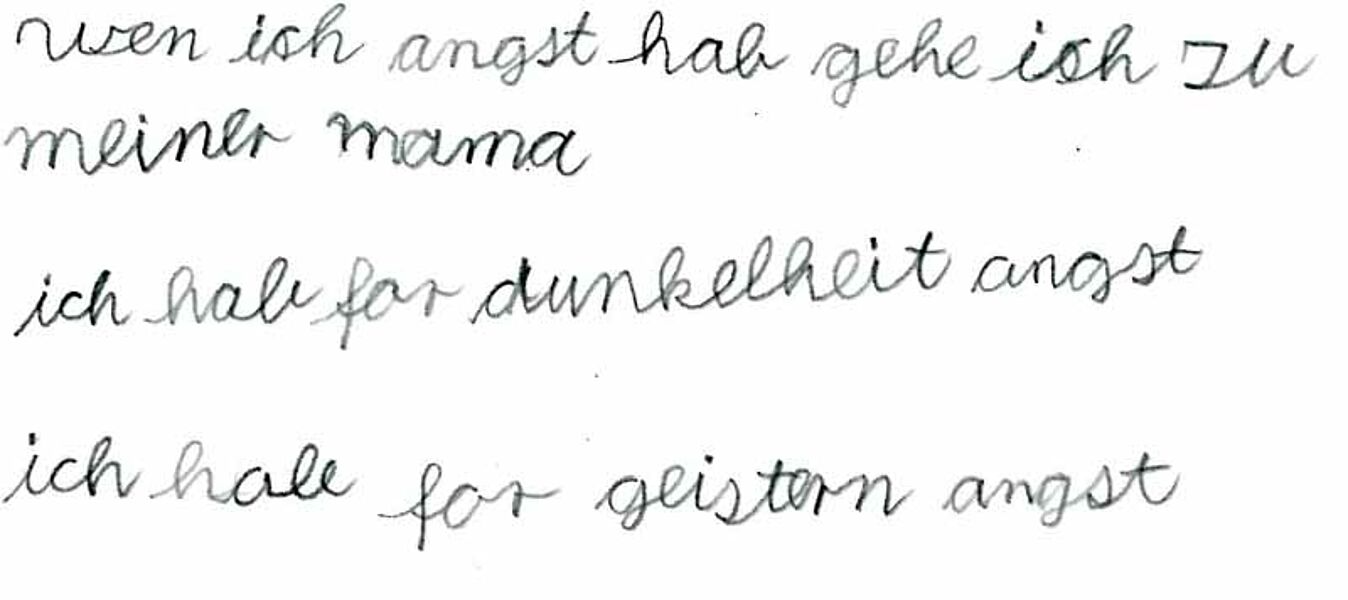 wen ich angst hab gehe ich zu
meiner mama
ich hab for dunkelheit angst
ich habe for geistern angst